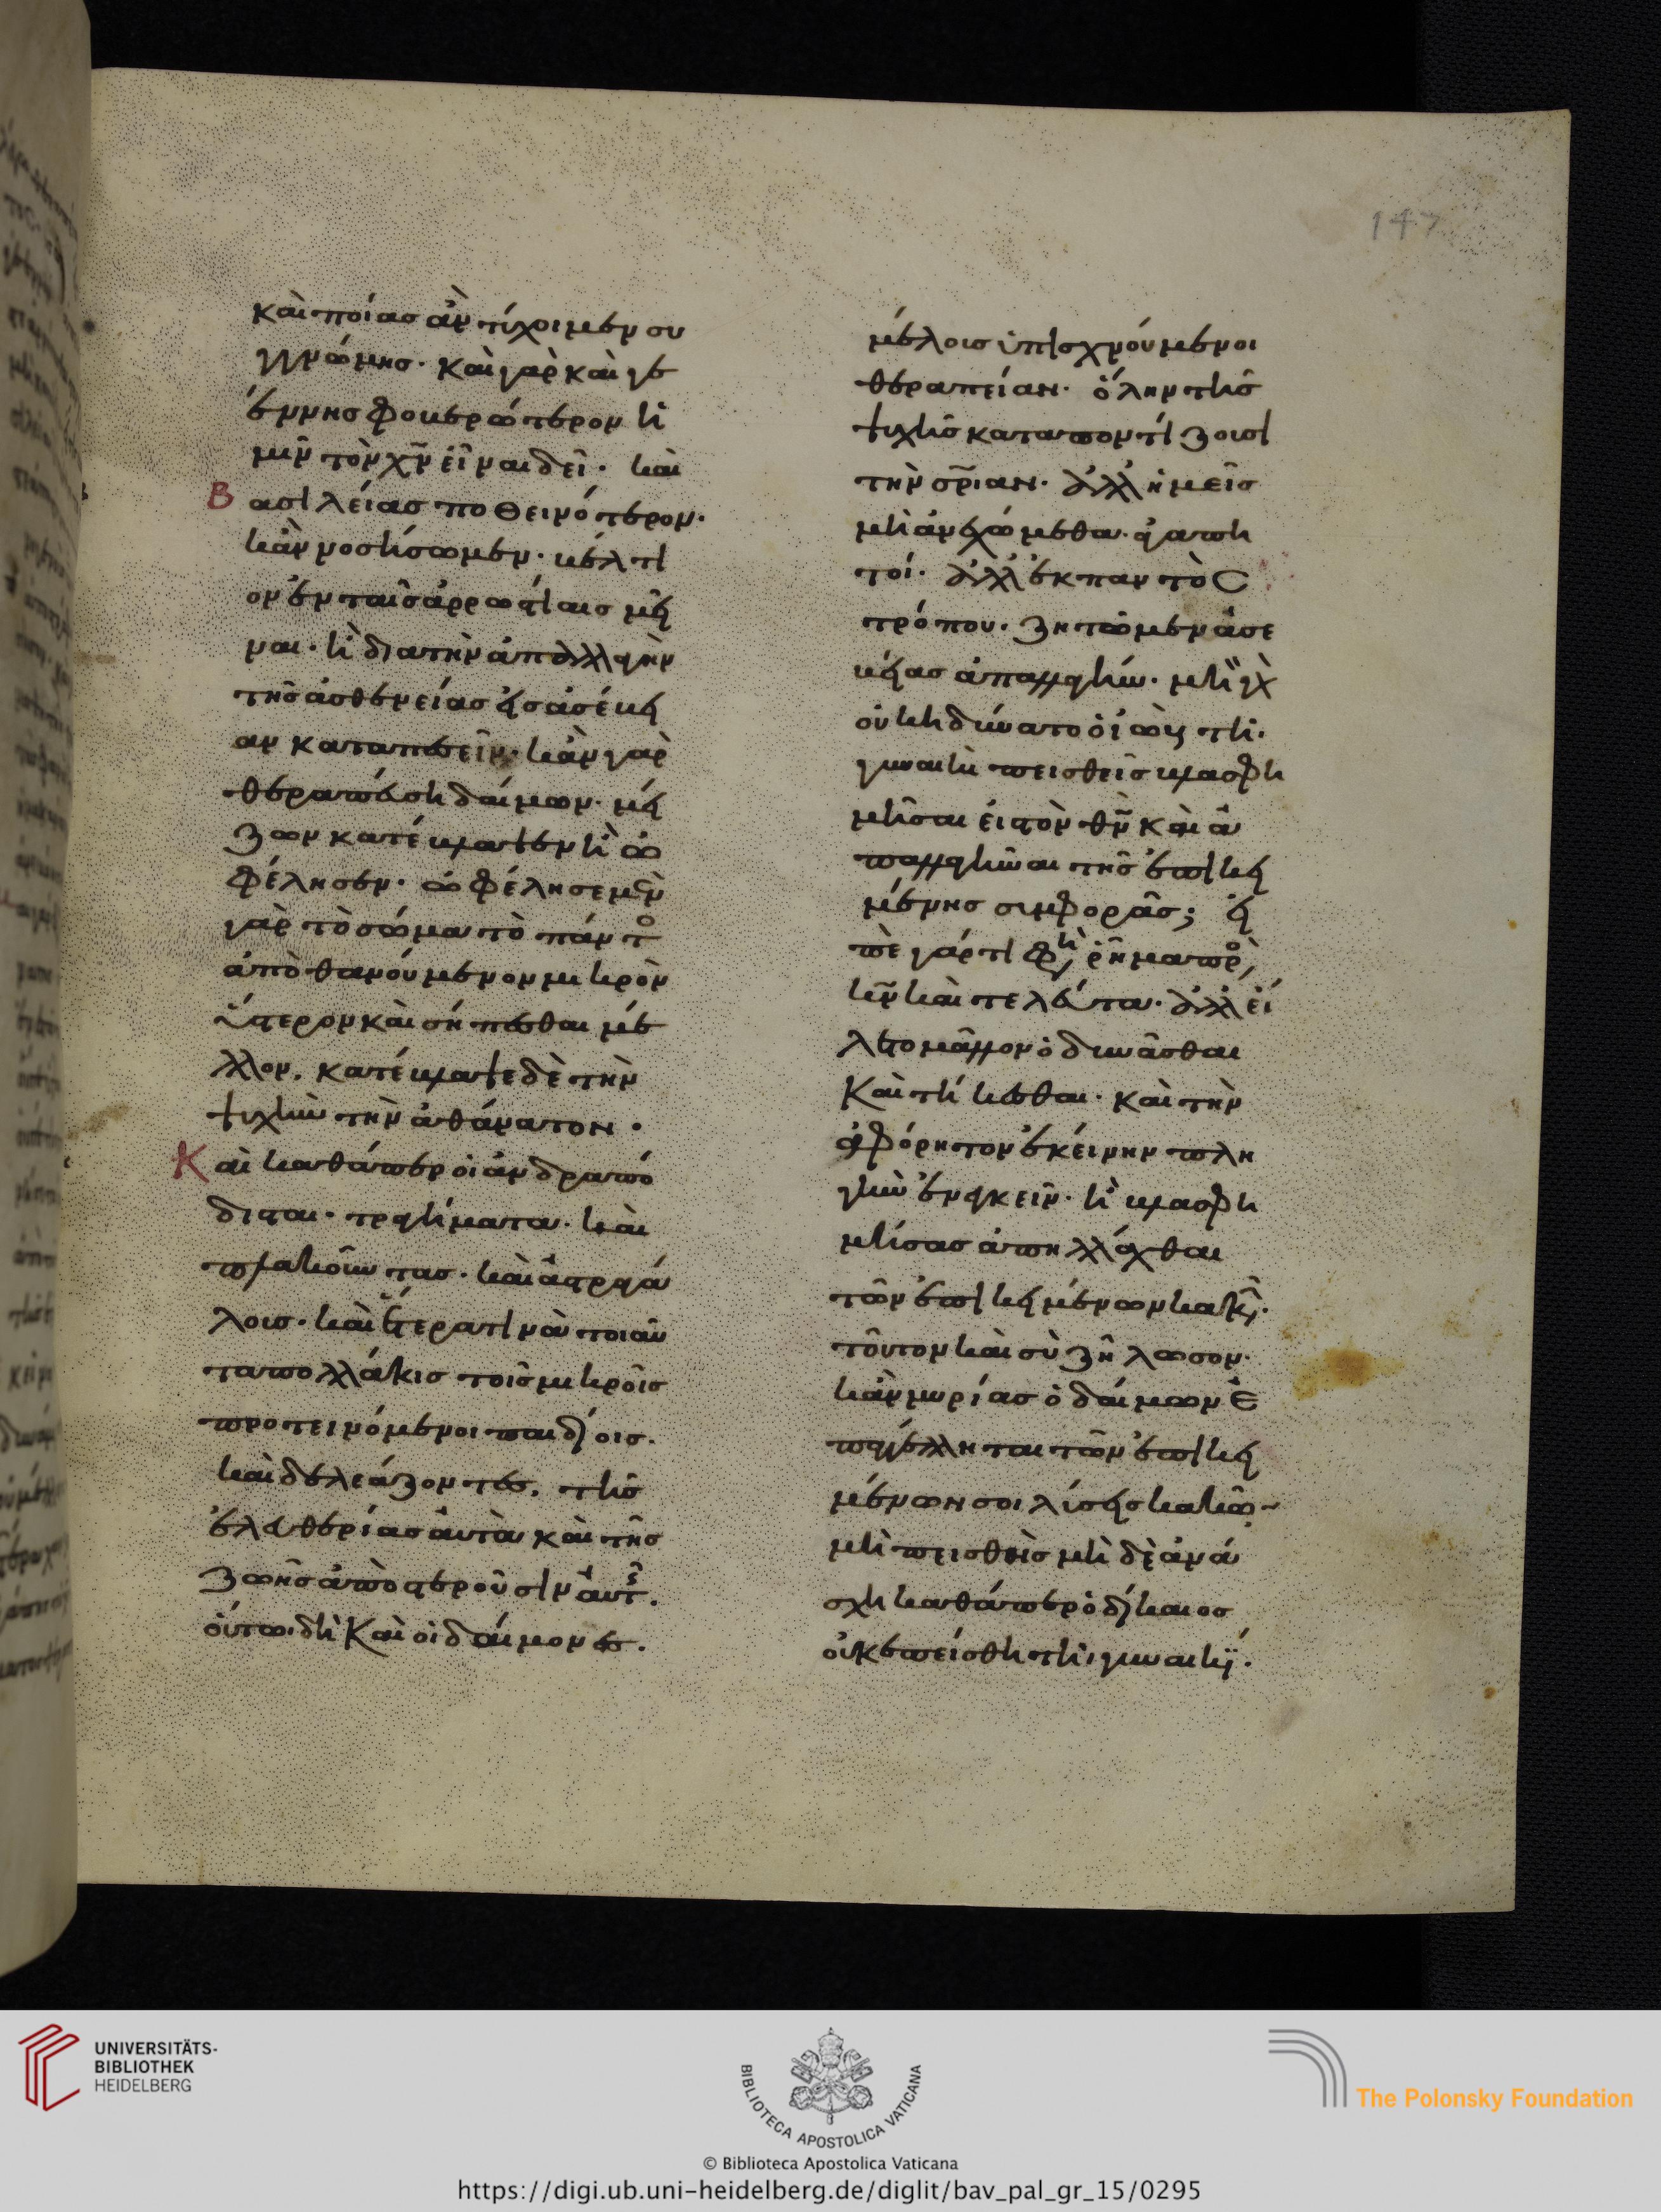 147
καὶ ποίας ἂν τύχοιμεν συ
γγνώμης· καὶ γὰρ καὶ γε
έννης φοβερώτερον ἡ
μῖν τὸν χν̅ εἶναι δεῖ· καὶ
Βασιλείας ποθεινότερον·
κἂν νοσήσωμεν· βέλτι
ον ἐν ταῖς ἀρρωστίαις μεῖ
ναι· ἢ διὰ τὴν ἀπαλλαγὴν
τῆς ἀσθενείας εἰς ἀσέβει
αν καταπεσεῖν· κἂν γὰρ
θεραπεύση δαίμων· μεῖ
ζων κατέβλαψεν ἢ ὠ
φέλησεν· ὠφέλησε μὲν
γὰρ τὸ σῶμα τὸ πάντ
ἀποθανούμενον μικρὸν
ὕστερον καὶ σήπεσθαι μέ
λλον. κατέβλαψε δὲ τὴν
ψυχὴν τὴν ἀθάνατον·
Καὶ καθάπερ οἱ ἀνδραπό
δισται· τραγήματα· καὶ
πλακοῦντας· καὶ ἀστραγά
λοις· καὶ ἕτερα τινὰ τοιαῦ
τα πολλάκις τοῖς μικροῖς
προτεινόμενοι παιδίοις·
καὶ δελεάζοντες, τῆς
ἐλευθερίας αὐτὰ καὶ τῆς
ζωῆς ἀποστεροῦσιν αὐτ.
οὕτω δὴ Καὶ οἱ δαίμονες.
μέλους ὑπισχνούμενοι
θεραπείαν· ὅλην τῆς
ψυχῆς καταποντίζουσι
τὴν σρ̅ιαν· ἀλλ' ἡμεῖς
μὴ ἀνεχώμεθα· ἀγαπη
τοί· ἀλλ' ἐκ παντὸς
τρόπου· ζητῶμεν ἀσε
βείας ἀπαλλαγήν· μὴ γὰρ
οὐκ ἠδύνατο ὁ ἰὼβ τῆ·
γυναικὶ πεισθεὶς βλασφη
μῆσαι εἰς τὸν θν̅ καὶ ἀ
παλλαγῆναι τῆς ἐπικει
μένης συμφορᾶς; εἰ
πὲ γάρ τι φη, ῥῆμα πρ,
κν̅ καὶ τελεύτα· ἀλλ' εἵ
λετο μᾶλλον ὀδυνᾶσθαι
Καὶ τήκεσθαι· καὶ τὴν
ἀφόρητον ἐκείνην πλη
γὴν ἐνεγκεῖν· ἢ βλασφη
μήσας ἀπηλλάχθαι
τῶν ἐπικειμένων κακ·
τοῦτον καὶ σὺ ζήλωσον·
κἂν μυρίας ὁ δαίμων ἐ
παγγέλληται τῶν ἐπικει
μένων σοι λύσεις κακῶ
μὴ πεισθῆς μὴ δὲ ἀνά
σχη καθάπερ ὁ δίκαιος
οὐκ ἐπείσθη τῆ γυναικί·
UNIVERSITÄTS-
BIBLIOTHEK
HEIDELBERG
BIBLIOTECA APOSTOLICA VATICANA
The Polonsky Foundation
© Biblioteca Apostolica Vaticana
https://digi.ub.uni-heidelberg.de/diglit/bav_pal_gr_15/0295